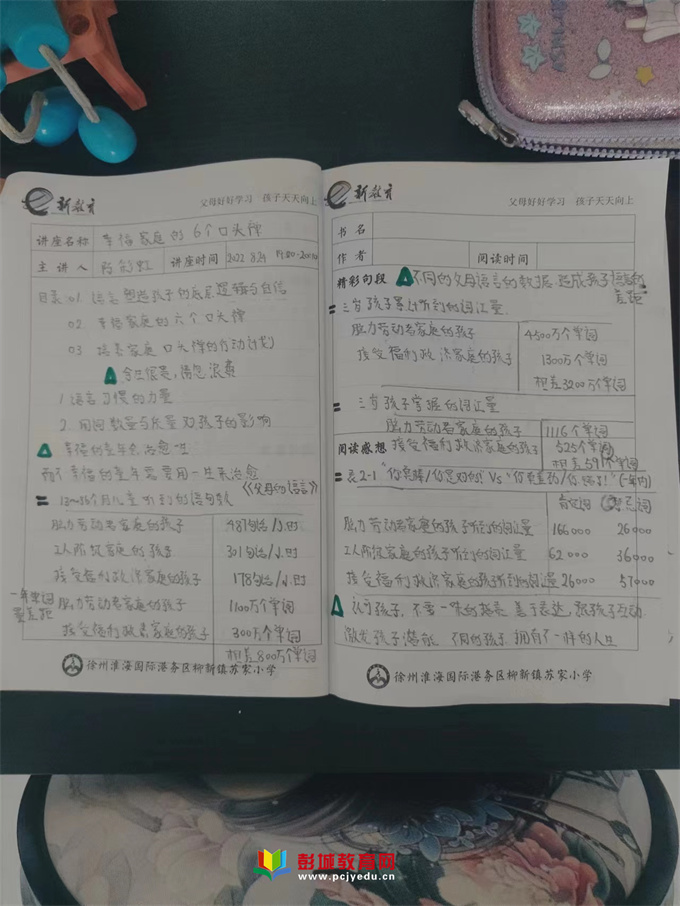 新教育
父母好好学习 孩子天天向上
讲座名称 幸福家庭的6个口头禅
主讲人 讲座时间 2022.8.24 19:00-20:00
目录 01 语言塑造孩子的底层逻辑与自信
02 幸福家庭的六个口头禅
03 培养家庭口头禅的行动计划
1 语言习惯的力量
2. 用词数量与质量对孩子的影响
幸福的童年会治愈一生
而不幸福的童年需要用一生来治愈
《父母的语言》
13~36个月儿童听到的语句数
脑力劳动者家庭的孩子 487句话/小时
工人阶级家庭的孩子 301句话/小时
接受福利救济家庭的孩子 178句话/小时
一年单词量差距
脑力劳动者家庭的孩子 1100万个单词
接受福利救济家庭的孩子 300万个单词
相差800万个单词
徐州淮海国际港务区柳新镇苏家小学
新教育
父母好好学习 孩子天天向上
书名
作者 阅读时间
精彩句段 不同的父母语言的数据,造成孩子语言的差距
三岁孩子累计听到的词汇量
脑力劳动者家庭的孩子 4500万个单词
接受福利救济家庭的孩子 1300万个单词
相差3200万个单词
三岁孩子掌握的词汇量
脑力劳动者家庭的孩子 1116个单词
阅读感想 接受福利救济家庭的孩子 525个单词
相差591个单词
表2-1 "你真棒/你是对的!" Vs (一年内)
肯定词 禁忌词
脑力劳动者家庭的孩子听到的词汇量 166000 26000
工人阶级家庭的孩子听到的词汇量 62000 36000
接受福利救济家庭的孩子听到的词汇量 26000 57000
认可孩子,不要一味的指责,善于表达,跟孩子互动
激发孩子潜能 不同的孩子 拥有了一样的人生
徐州淮海国际港务区柳新镇苏家小学
彭城教育网
www.pcjyedu.cn